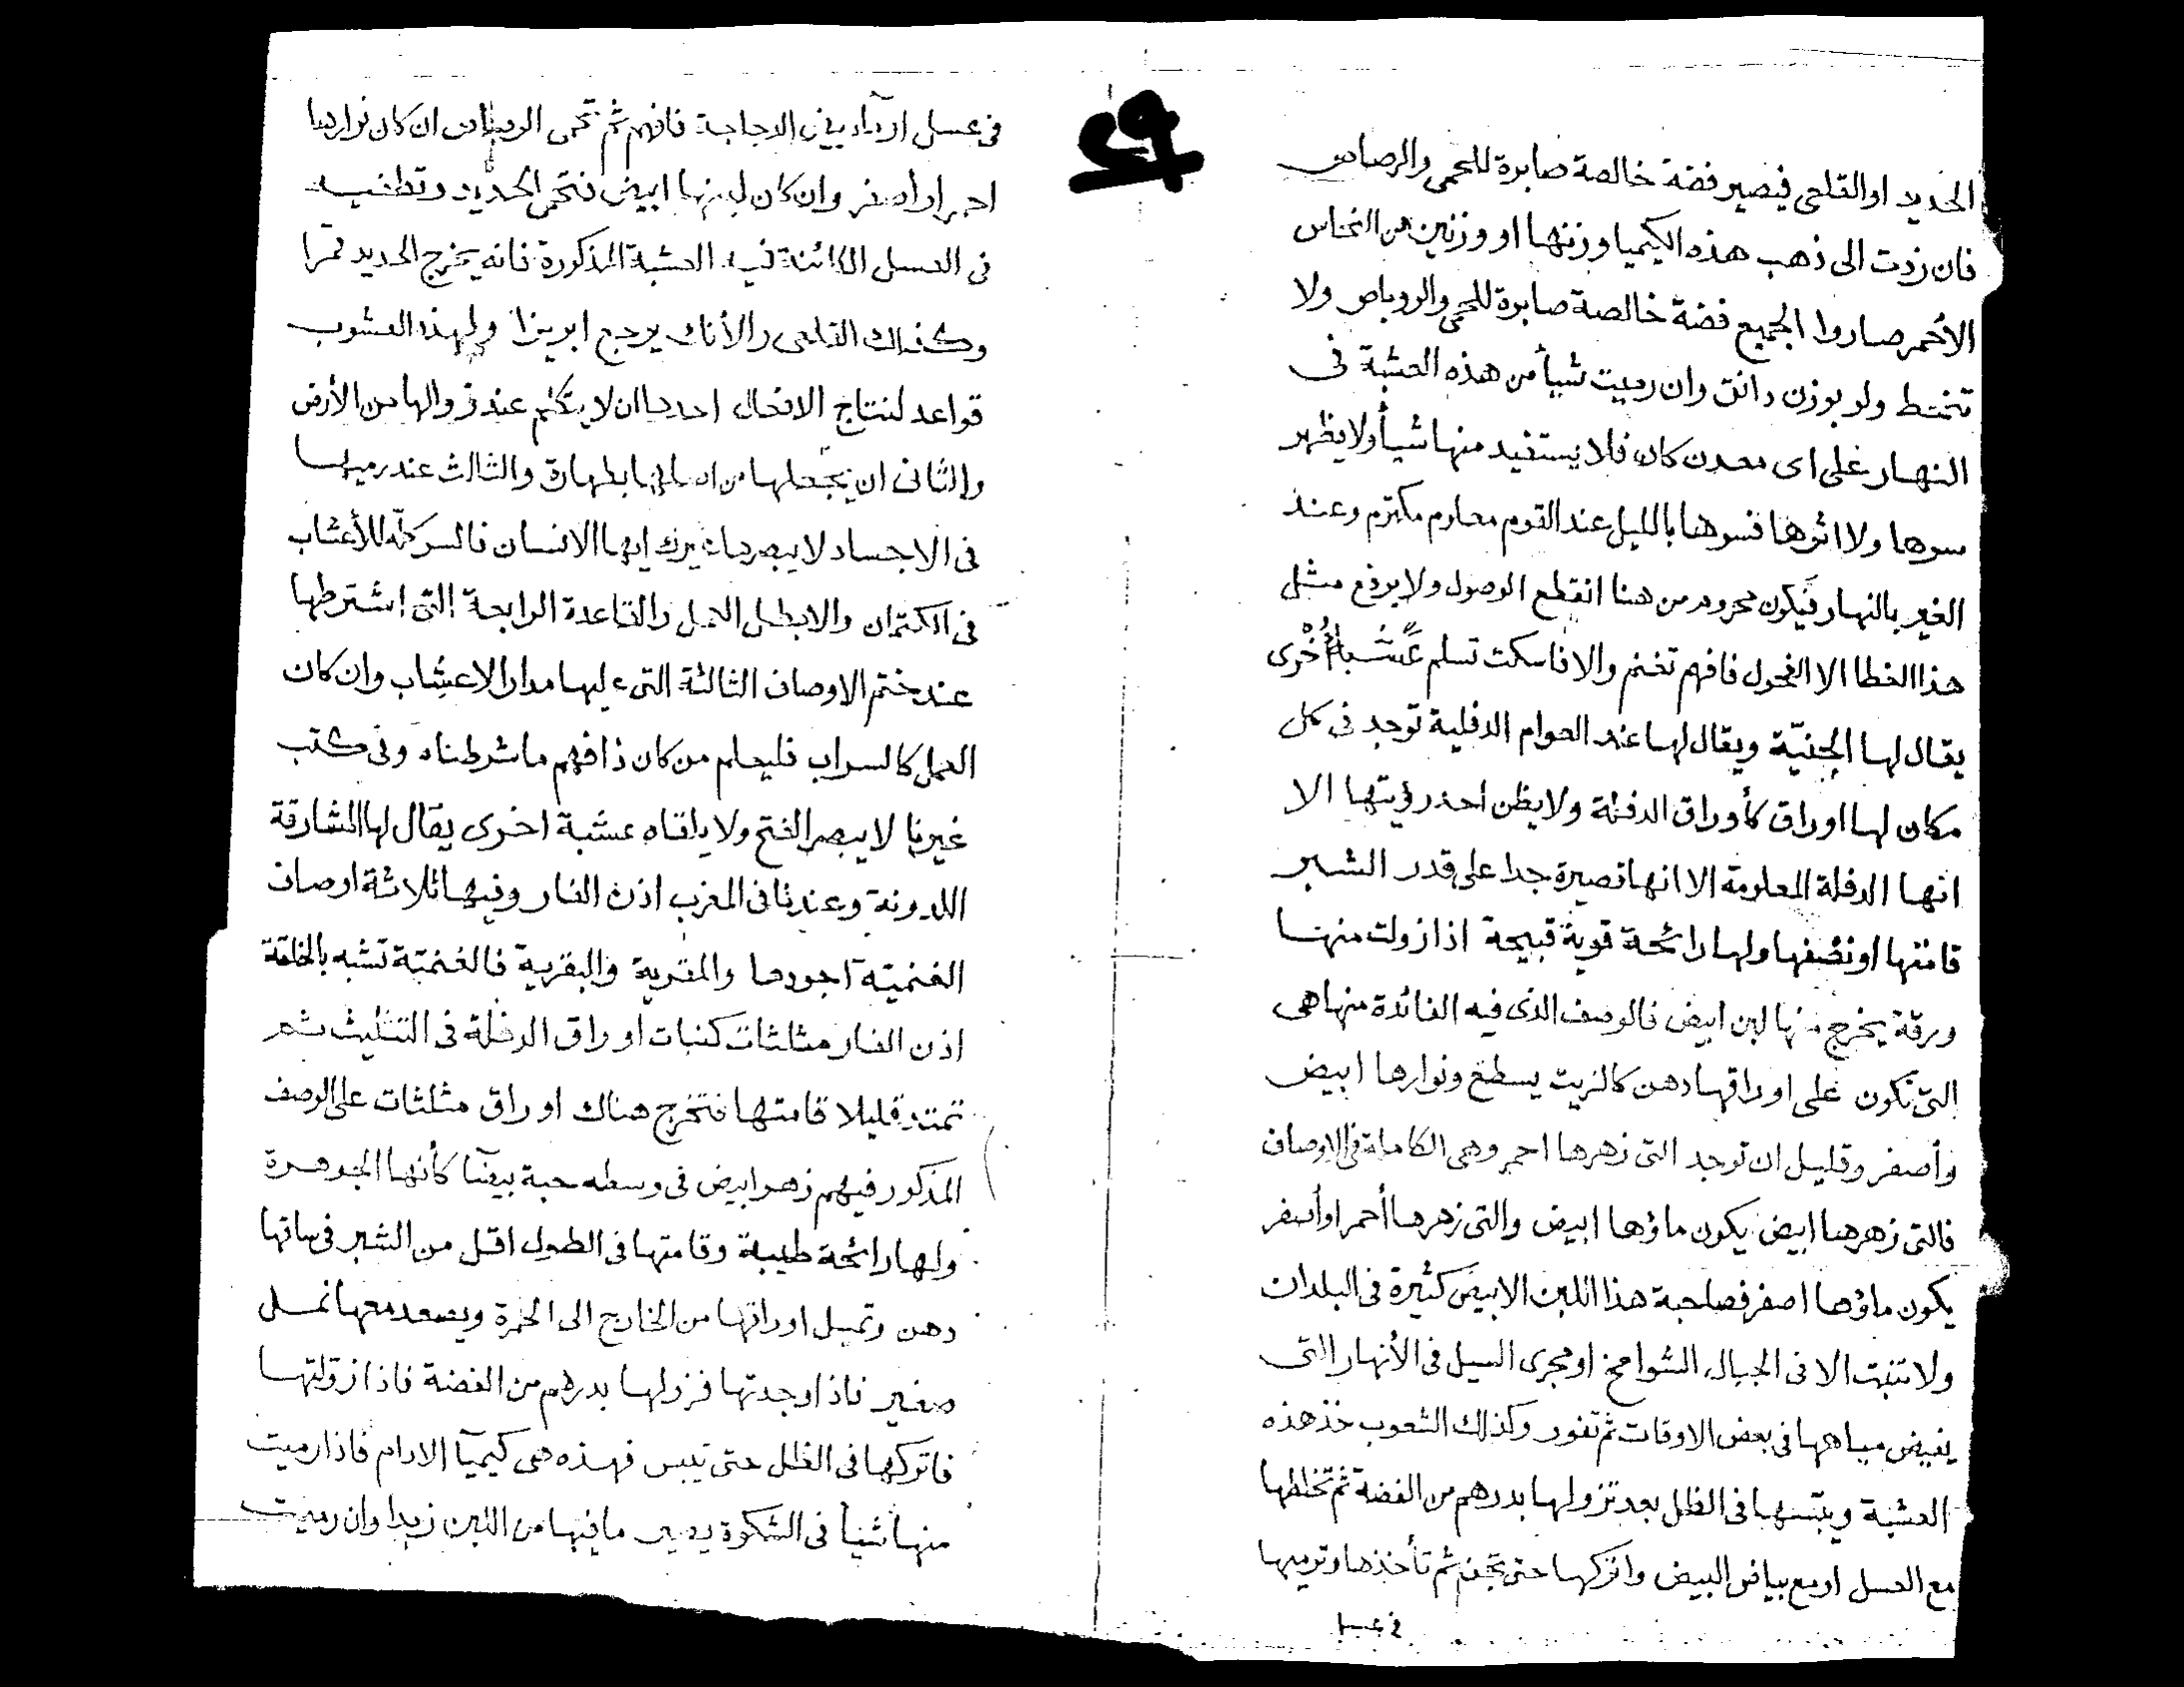 الحديد او القلعى فيصير فضة خالصة صابرة للحمى والرصاص
فان زدت الى ذهب هذه الكيميا وزنها او وزنين من النحاس
الأحمر صاروا الجميع فضة خالصة صابرة للحمى والروباص ولا
تختط ولو بوزن دانق وان رميت شيأ من هذه العشبة فى
النهار على اى معدن كان فلا يستفيد منها شيأ ولا يظهر
سرها ولا اثرها فسرها بالليل عند القوم معلوم مكترم وعند
الغير بالنهار فيكون محروم من هنا انقطع الوصول ولا يرفع مثل
هذا الغطا الا الفحول فافهم تغنم والا فاسكت تسلم عشبة أخرى
يقال لها الجنيّة ويقال لها عند العوام الدفلية توجد فى كل
مكان لها اوراق كأوراق الدفلة ولا يظن احد رؤيتها الا
انها الدفلة المعلومة الا انها قصيرة جدا على قدر الشبر
قامتها او نصفها ولها رائحة قوية قبيحة اذا زولت منها
ورقة يخرج منها لبن ابيض فالوصف الذى فيه الفائدة منها هى
التى تكون على اوراقها دهن كالزيت يسطع ونوارها ابيض
وأصفر وقليل ان توجد التى زهرها احمر وهى الكاملة فى الاوصاف
فالتى زهرها ابيض يكون ماؤها ابيض والتى زهرها أحمر او أصفر
يكون ماؤها اصفر فصاحبة هذا اللبن الابيض كثيرة فى البلدان
ولا تنبت الا فى الجبال الشوامخ او مجرى السيل فى الأنهار التى
يفيض مياهها فى بعض الاوقات ثم تغور وكذلك الشعوب خذ هذه
العشبة ويبّسها فى الظل بعد تزولها بدرهم من الفضة ثم تخلطها
مع العسل او مع بياض البيض واتركها حتى تجف ثم تأخذها وترميها
فى عسل
29
فى عسل او بيض الدجاجة فافهم ثم تحمى الرصاص ان كان نوارها
احمر او أصفر وان كان لبنها ابيض فتحمى الحديد وتطفيه
فى العسل الكائنة فيه العشبة المذكورة فانه يخرج الحديد قمرا
وكذلك القلعى والأنك يرجع ابريزا ولهذه العشوب
قواعد لنتاج الافعال احدها ان لا يتكلم عند زوالها من الأرض
والثانى ان يجعلها من اصلها بطهارة والثالث عند رميها
فى الاجساد لا يبصرها غيرك ايها الانسان فالسر كلّه للأعشاب
فى الكتمان والا بطل العمل والقاعدة الرابعة التى اشترطها
عند ختم الاوصاف الثالثة التى عليها مدار الاعشاب وان كان
العمل كالسراب فليعلم من كان ذا فهم ما شرطناه وفى كتب
غيرنا لا يبصر الفتح ولا يلقاه عشبة اخرى يقال لها الشارقة
اللدونة وعندنا فى المغرب اذن الفار وفيها ثلاثة اوصاف
الغنمية اجودها والمقرية والبقرية فالغنمية تشبه بالخلقة
اذن الفار مثلثات كنبات اوراق الدفلة فى التثليث ثم
تمتد قليلا قامتها فتخرج هناك اوراق مثلثات على الوصف
المذكور فيهم زهر ابيض فى وسطه حبة بيضآ كأنها الجوهرة
ولها رائحة طيبة وقامتها فى الطول اقل من الشبر فى ساقها
دهن وتميل اوراقها من الخارج الى الحمرة ويصعد معها نمل
صغير فاذا وجدتها فزولها بدرهم من الفضة فاذا زولتها
فاتركها فى الظل حتى تيبس فهذه هى كيميآ الادام فاذا رميت
منها شيأ فى الشكوة يصير ما فيها من اللبن زبدا وان رميت